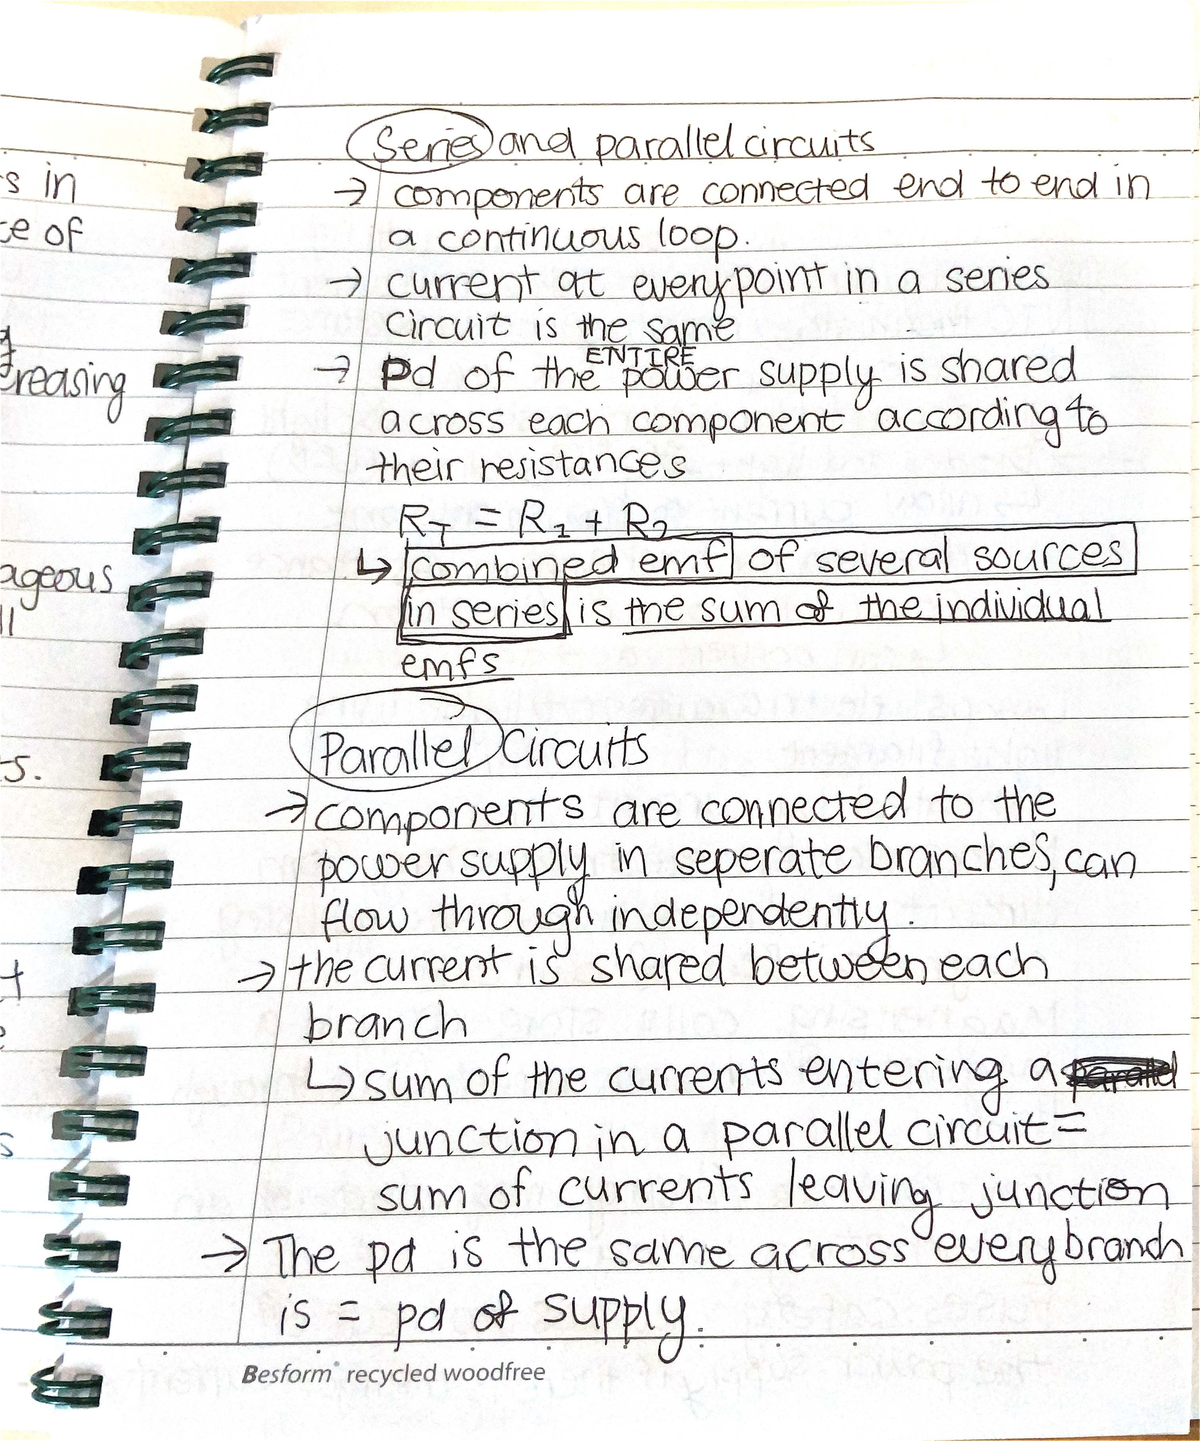 Series and parallel circuits
→ components are connected end to end in
a continuous loop.
→ current at every point in a series
circuit is the same
ENTIRE
→ pd of the power supply is shared
across each component according to
their resistances
R_T = R_1 + R_2
↳ combined emf of several sources
in series is the sum of the individual
emfs
Parallel Circuits
→ components are connected to the
power supply in seperate branches, can
flow through independently.
→ the current is shared between each
branch
↳ sum of the currents entering a
junction in a parallel circuit =
sum of currents leaving junction
→ The pd is the same across every branch
is = pd of supply.
Besform recycled woodfree
s in
ce of
reasing
ageous
s.